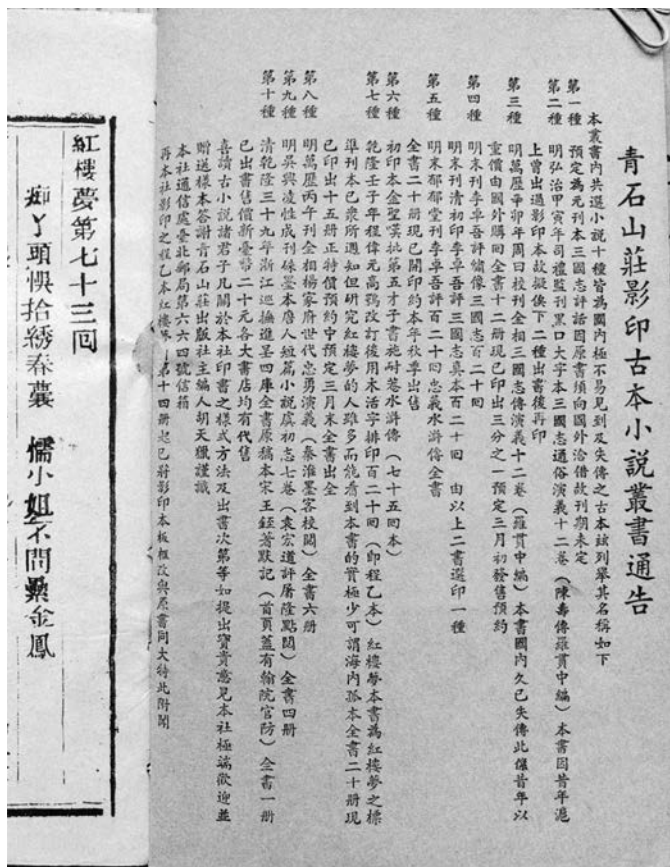 青石山莊影印古本小說叢書通告
本叢書內共選小說十種皆為國內極不易見到及失傳之古本玆列舉其名稱如下
第一種 預定為元刊本三國志評話因原書須向國外洽借故刊期未定
第二種 明弘治甲寅年司禮監刊黑口大字本三國志通俗演義十二卷（陳壽傳羅貫中編）本書因昔年滬
上曾出過影印本故擬俟下二種出書後再印
第三種 明萬歷辛卯年周曰校刊金相三國志傳演義十二卷（羅貫中編）本書國內久已失傳此係昔年以
重價由國外購回全書十二册現已印出三分之一預定三月初發售預約
第四種 明末刊李卓吾評繡像三國志百二十回
明末刊清初印李卓吾評三國志真本百二十回 由以上二書選印一種
第五種 明末郁郁堂刊李卓吾評百二十回忠義水滸傳全書
全書二十册現已開印約本年秋季出售
第六種 初印本金聖嘆批第五才子書施耐菴水滸傳（七十五回本）
第七種 乾隆壬子年程偉元高鶚改訂後用木活字排印百二十回（即程乙本）紅樓夢本書為紅樓夢之標
準刊本已衆所週知但研究紅樓夢的人雖多而能看到本書的實極少可謂海内孤本全書二十册現
已印出十五册正特價預約中預定三月末全書出全
第八種 明萬歷丙午刊金相楊家府世代忠勇演義（秦淮墨客校閱）全書六册
第九種 明吳興凌性成刊硃墨本唐人短篇小說虞初志七卷（袁宏道評屠隆點閱）全書四册
第十種 清乾隆三十九年浙江巡撫進呈四庫全書原稿本宋王銍著默記（首頁蓋有翰院官防）全書一册
已出書售價新臺幣二十元各大書店均有代售
喜讀古小說諸君子凡關於本社印書之樣式方法及出書次第等如提出寶貴意見本社極端歡迎並
贈送樣本答謝青石山莊出版社主編人胡天獵謹識
本社通信處臺北郵局第六六四號信箱
再本社影印之程乙本紅樓夢第十四册起已將影印本板框改與原書同大特此附聞
紅樓夢第七十三回
痴丫頭悞拾綉春囊 懦小姐不問纍金鳳